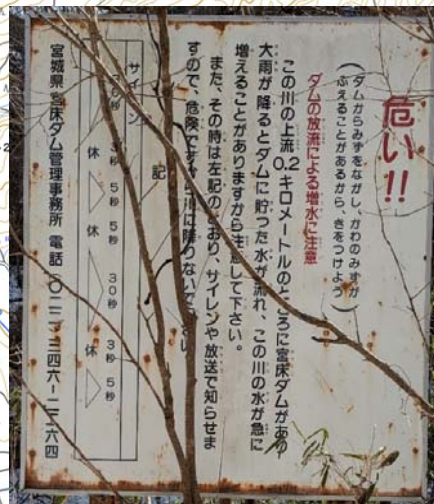 危い!!
(ダムからみずをながし、かわのみずが
ふえることがあるから、きをつけよう)
ダムの放流による増水に注意
この川の上流0.2キロメートルのところに宮床ダムがあり
大雨が降るとダムに貯った水が流れ、この川の水が急に
増えることがありますから注意して下さい。
また、その時は左記のとおり、サイレンや放送で知らせま
すので、危険ですから川に降りないで
記
サイレン
30秒
休
5秒
5秒
休
30秒
3秒
休
5秒
宮城県宮床ダム管理事務所 電話〇二二-三四六-二二六四